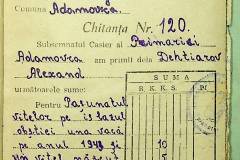 Comuna Adamovza
Chitanța Nr. 120.
Subsemnatul Casier al Primariei
Adamovza am primit dela Dehtiarov
Alexand
următoarele sume:
SUMA
R. K. K. S.
Pentru Pașunatul
vitelor pe islazul
obștiei una vacă
pe anul 1943 și 10
un vitel născut 5